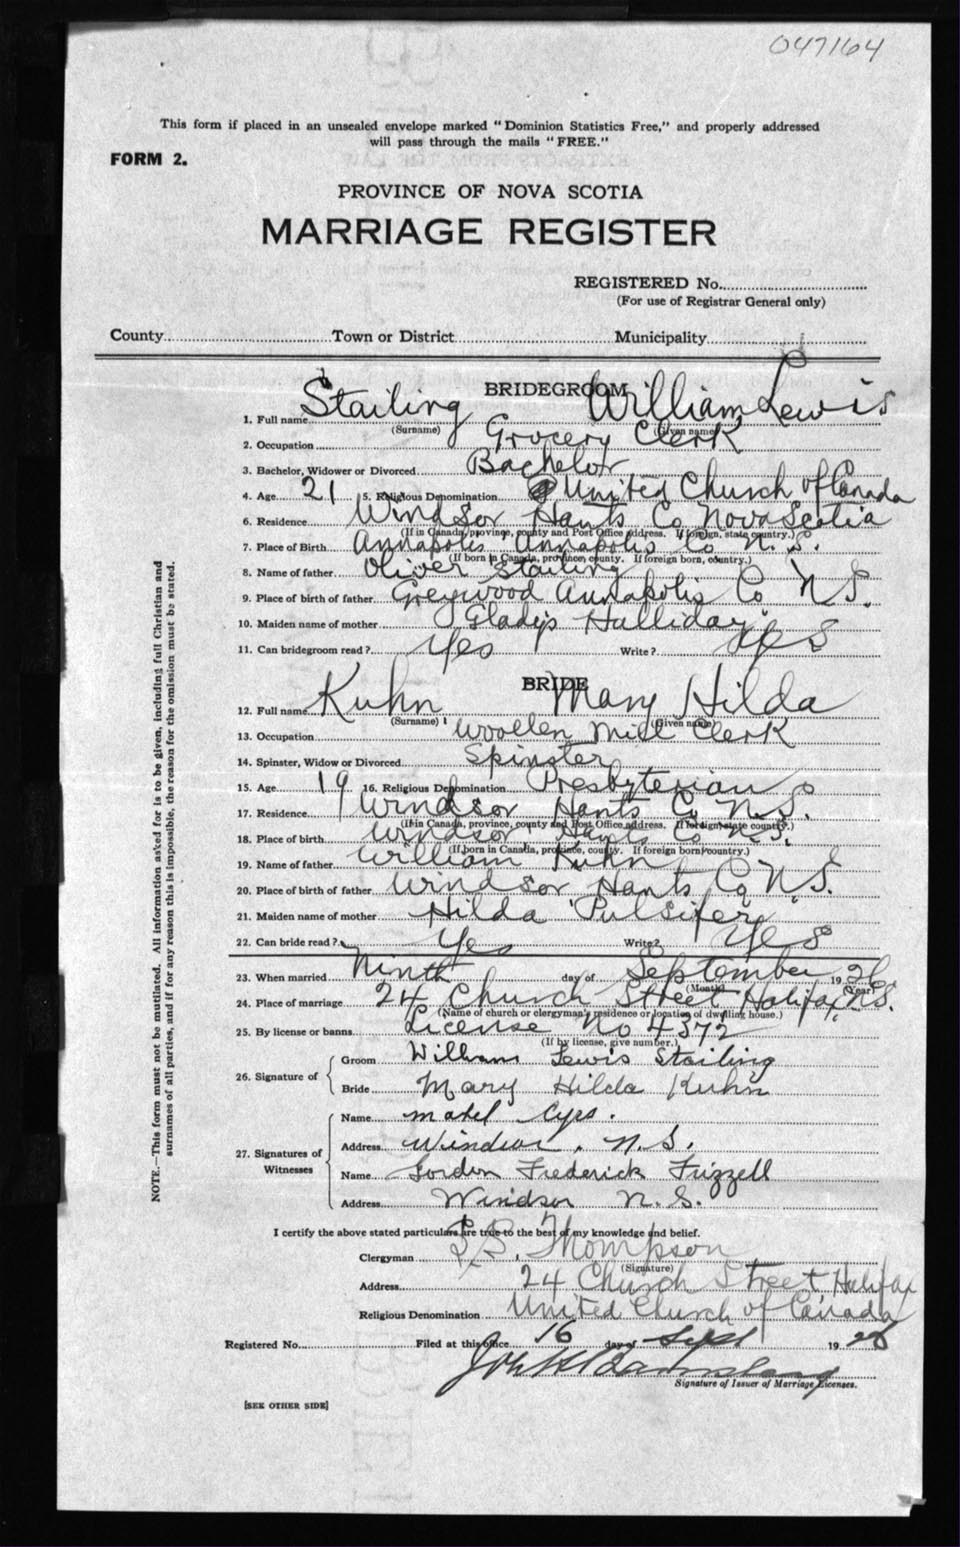 047164
This form if placed in an unsealed envelope marked "Dominion Statistics Free," and properly addressed
will pass through the mails "FREE."
FORM 2.
PROVINCE OF NOVA SCOTIA
MARRIAGE REGISTER
REGISTERED No.
(For use of Registrar General only)
County Town or District Municipality
BRIDEGROOM
1. Full name Stailing William Lewis
(Surname) (Given name)
2. Occupation Grocery Clerk
3. Bachelor, Widower or Divorced Bachelor
4. Age 21 5. Religious Denomination United Church of Canada
6. Residence Windsor Hants Co Nova Scotia
(If in Canada, province, county and Post Office address. If foreign, state country.)
7. Place of Birth Annapolis Annapolis Co N.S.
(If born in Canada, province, county. If foreign born, country.)
8. Name of father Oliver Stailing
9. Place of birth of father Greywood Annapolis Co N.S.
10. Maiden name of mother Gladys Halliday
11. Can bridegroom read? Yes Write? Yes
BRIDE
12. Full name Kuhn Mary Hilda
(Surname) (Given name)
13. Occupation Woollen Mill Clerk
14. Spinster, Widow or Divorced Spinster
15. Age 19 16. Religious Denomination Presbyterian
17. Residence Windsor Hants Co N.S.
(If in Canada, province, county and Post Office address. If foreign state country.)
18. Place of birth Windsor Hants Co N.S.
(If born in Canada, province, county. If foreign born, country.)
19. Name of father William Kuhn
20. Place of birth of father Windsor Hants Co N.S.
21. Maiden name of mother Hilda Pulsifer
22. Can bride read? Yes Write? Yes
23. When married Ninth day of September 19
(Month) (Year)
24. Place of marriage 24 Church Street Halifax N.S.
(Name of church or clergyman's residence or location of dwelling house.)
25. By license or banns License No 4372
(If by license, give number.)
26. Signature of
Groom William Lewis Stailing
Bride Mary Hilda Kuhn
27. Signatures of Witnesses
Name Mabel
Address Windsor, N.S.
Name Gordon Frederick Frizzell
Address Windsor N.S.
I certify the above stated particulars are true to the best of my knowledge and belief.
Clergyman Thompson
(Signature)
Address 24 Church Street Halifax
Religious Denomination United Church of Canada
Registered No. Filed at this office 16 day of Sept 19
Signature of Issuer of Marriage Licenses.
[SEE OTHER SIDE]
NOTE.—This form must not be mutilated. All information asked for is to be given, including full Christian and
surnames of all parties, and if for any reason this is impossible, the reason for the omission must be stated.